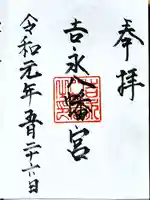 奉拝
吉永八幡宮
令和元年五月二十六日